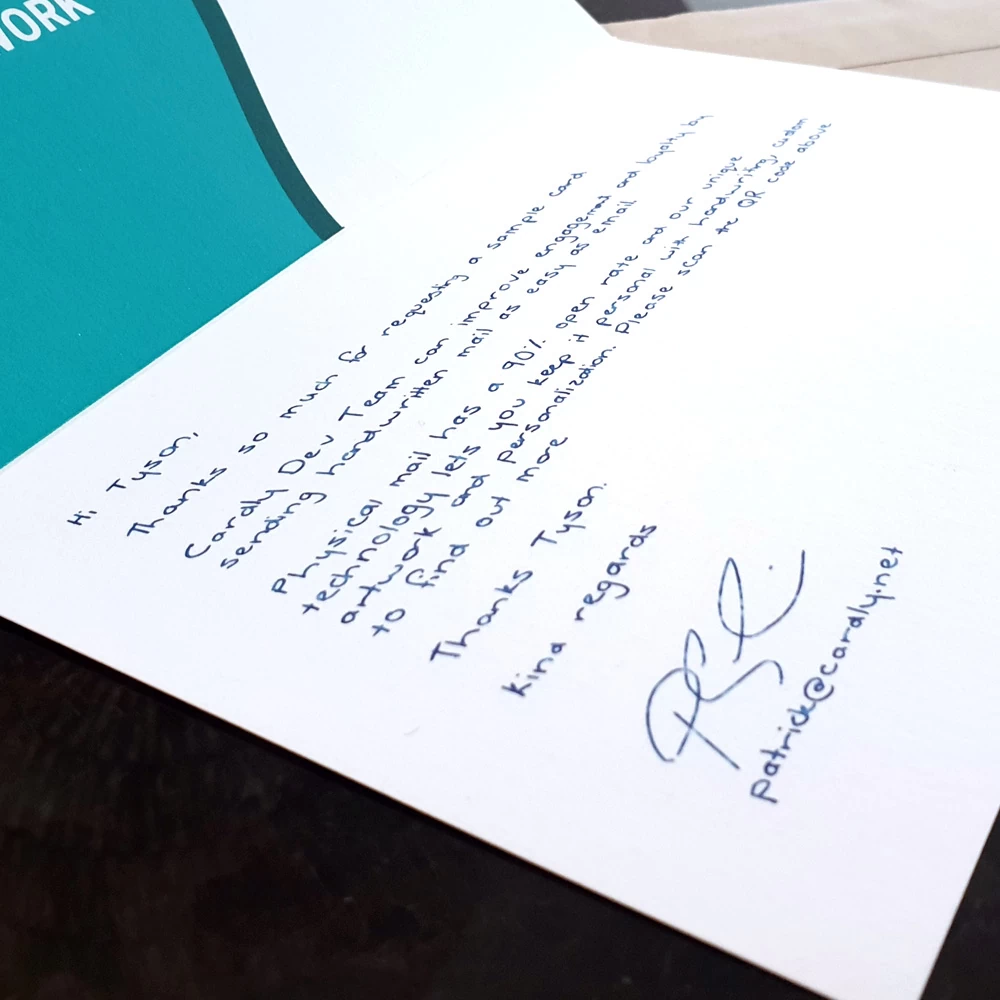 WORK
Hi Tyson,
Thanks so much for requesting a sample card
Cardly Dev Team can improve engagement and loyalty by
sending handwritten mail as easy as email
Physical mail has a 90% open rate and our unique
technology lets you keep it personal with handwriting, custom
artwork and personalization. Please scan the QR code above
to find out more
Thanks Tyson.
Kind regards
patrick@cardly.net